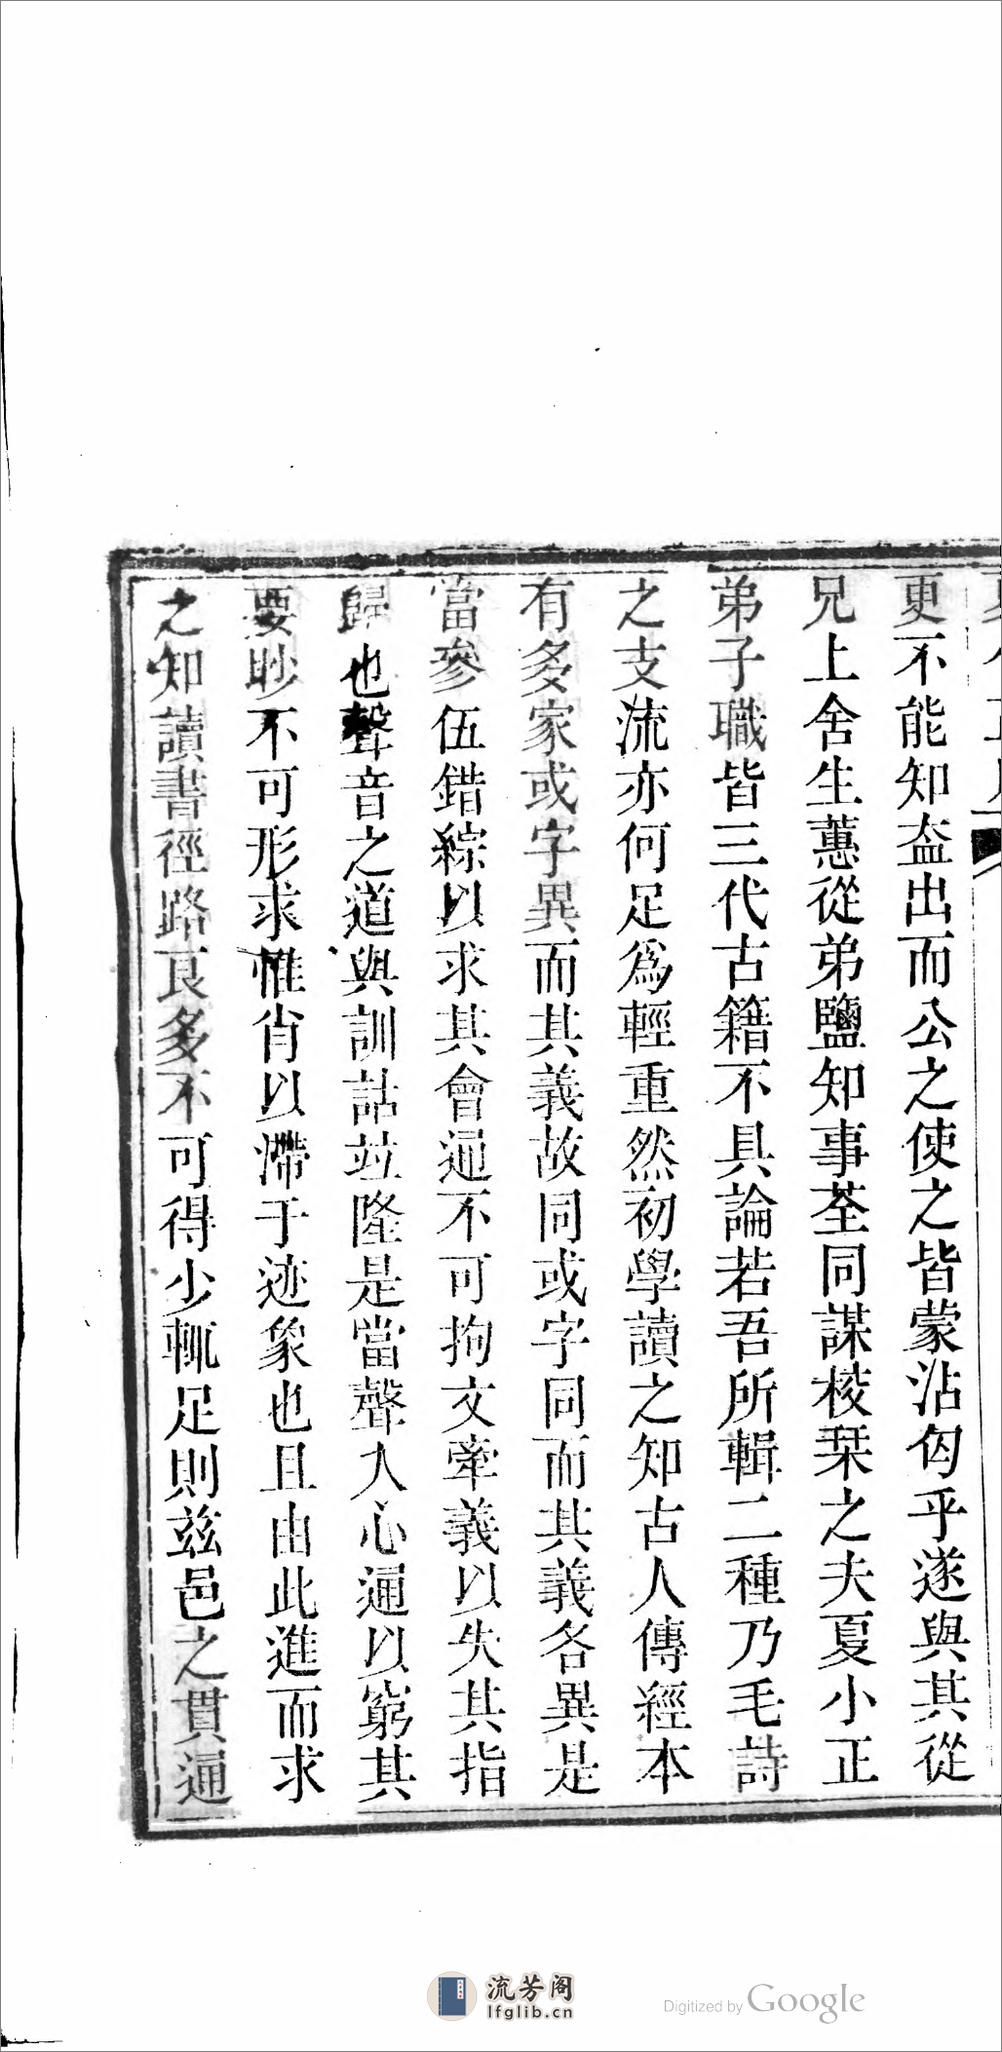 更不能知盍出而公之使之皆蒙沾匄乎遂與其從
兄上舍生蕙從弟鹽知事荃同謀棱栞之夫夏小正
弟子職皆三代古籍不具論若吾所輯二種乃毛詩
之支流亦何足爲輕重然初學讀之知古人傳經本
有多家或字異而其義故同或字同而其義各異是
當參伍錯綜以求其會通不可拘文牽義以失其指
歸也聲音之道與訓詁竝隆是當聲入心通以窮其
要眇不可形求惟肖以滯于迹象也且由此進而求
之知讀書徑路良多不可得少輒足則兹邑之貫通
流芳阁
lfglib.cn
Digitized by Google